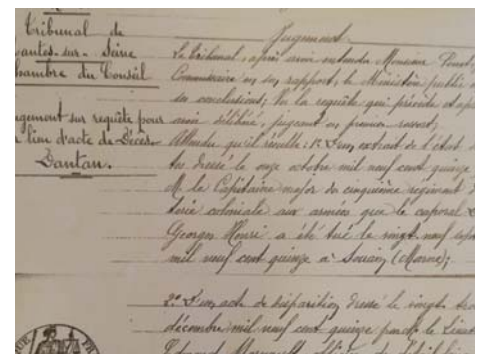 Tribunal de
antes-sur-Seine
hambre du Conseil
gement sur requête pour
lieu d'acte de Décès
Dantan.
Jugement
Le tribunal, après avoir entendu Monsieur
Commissaire en son rapport, le Ministère public
ses conclusions; Vu la requête qui précède et
avoir délibéré, jugeant en premier ressort,
Attendu qu'il résulte: 1° D'un extrait de l'état
dressé le onze octobre mil neuf cent quinze
M. le Capitaine major du cinquième régiment
terie coloniale aux armées que le caporal
Georges Henri a été tué le vingt neuf
mil neuf cent quinze à Souain (Marne);
2° D'un acte de disparition dressé le vingt
décembre mil neuf cent quinze par le